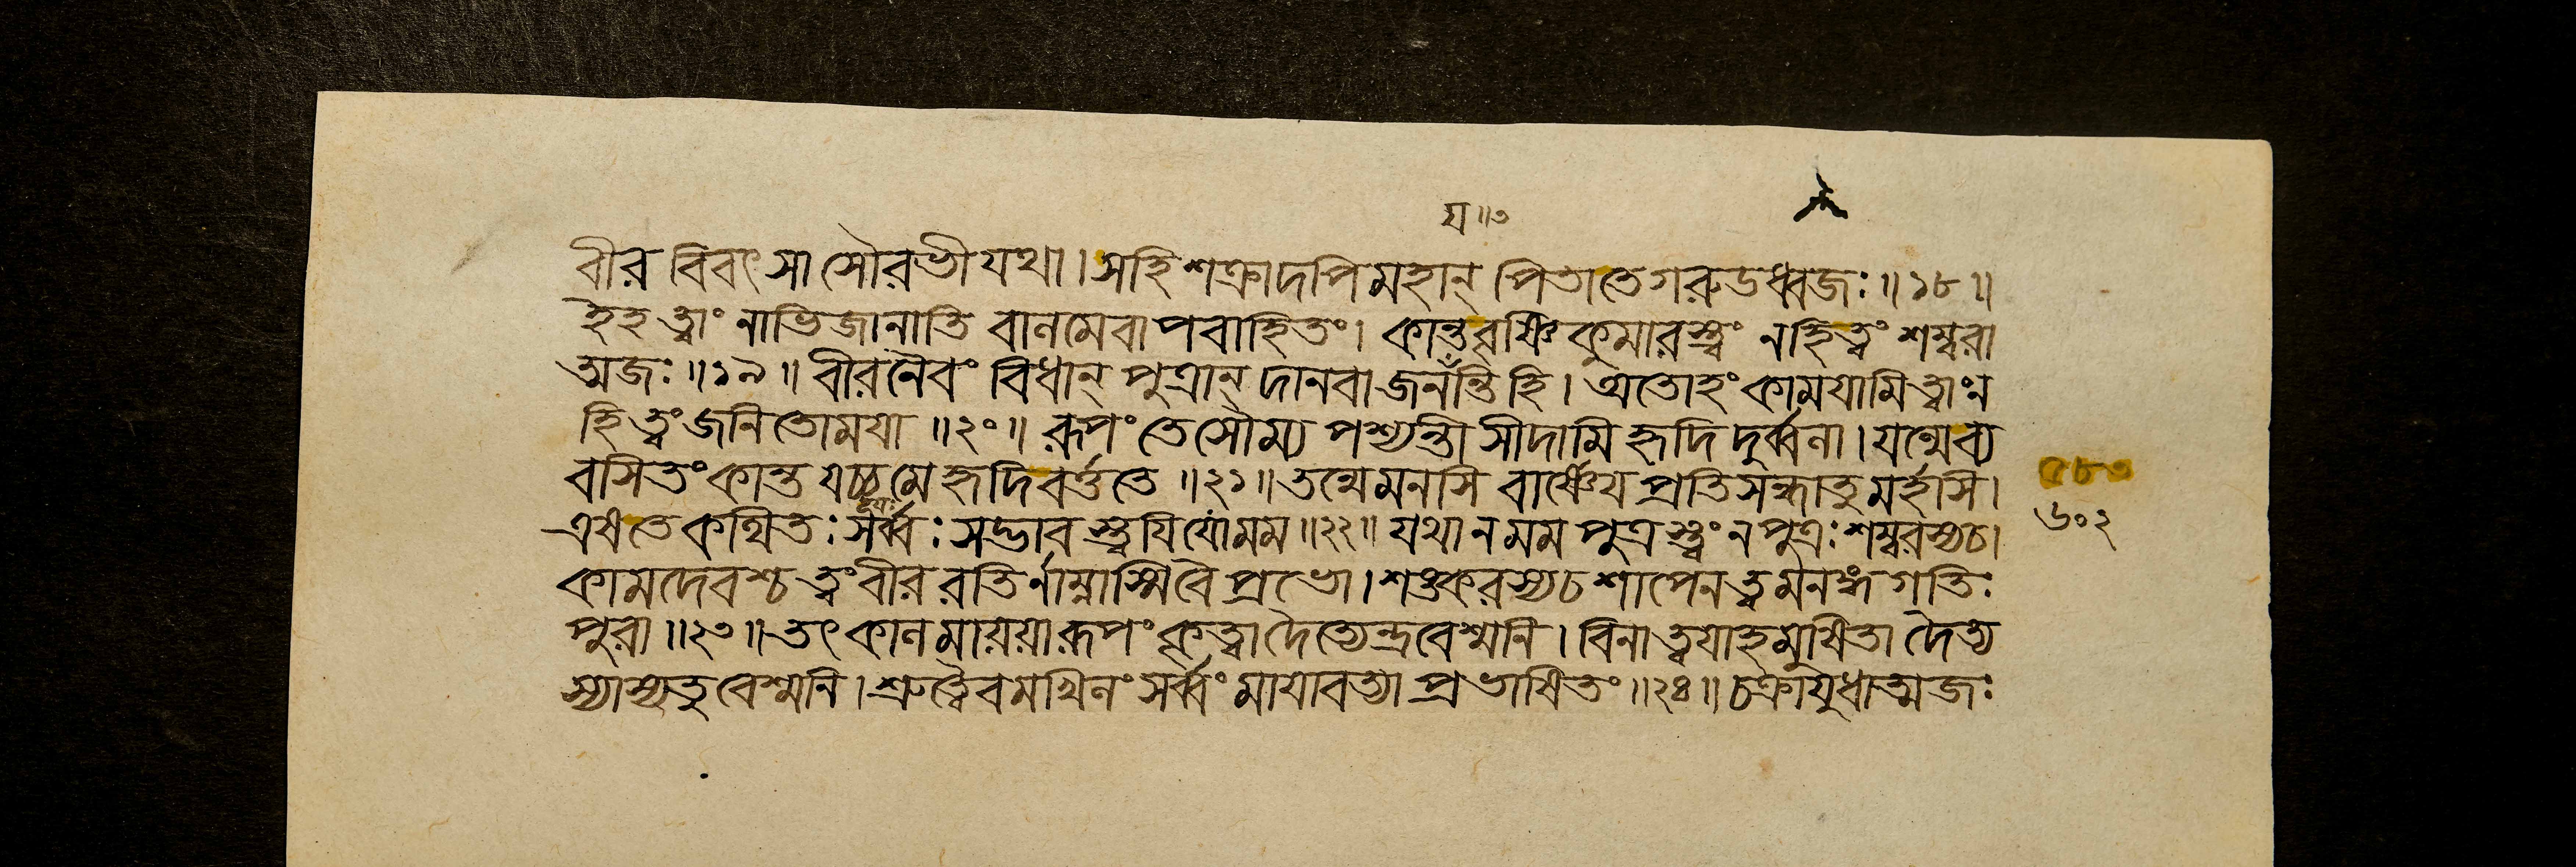 য॥৩
বীর বিবৎসা সৌরভী যথা। স হি শক্রাদপি মহান্ পিতা তে গরুডধ্বজঃ॥১৮॥
ইহ ত্বাং নাভিজানাতি বালমেবাপবাহিতং। কান্ত বৃষ্ণিকুমারস্ত্বং ন হি ত্বং শম্বরা
ত্মজঃ॥১৯॥ বীর নৈবং বিধান্ পুত্রান্ দানবা জনযন্তি হি। অতোহং কামযামি ত্বাং ন
হি ত্বং জনিতো ময়া॥২০॥ রূপং তে সৌম্য পশ্যন্তী সীদামি হৃদি দুর্ব্বলা। যন্মে ব্য
বসিতং কান্ত যচ্চ মে হৃদি বর্ত্ততে॥২১॥ তন্মে মনসি বার্ষ্ণেয প্রতিসন্ধাতুমর্হসি।
৫৮৩
এষ তে কথিতঃ সর্ব্বঃ সদ্ভাবস্ত্বযি যো মম॥২২॥ যথা ন মম পুত্রস্ত্বং ন পুত্রঃ শম্বরস্য চ।
৬০২
কামদেবশ্চ ত্বং বীর রতির্নাম্নাস্মি বৈ প্রভো। শঙ্করস্য চ শাপেন ত্বমনঙ্গগতিঃ
পুরা॥২৩॥ তৎ কাল মাযযা রূপং কৃত্বা দৈত্যেন্দ্রবেশ্মনি। বিনা ত্বযাহমুষিতা দৈত্য
স্যাস্য তু বেশ্মনি। শ্রুত্বৈবমখিলং সর্ব্বং মাযাবত্যা প্রভাষিতং॥২৪॥ চক্রাযুধাত্মজঃ